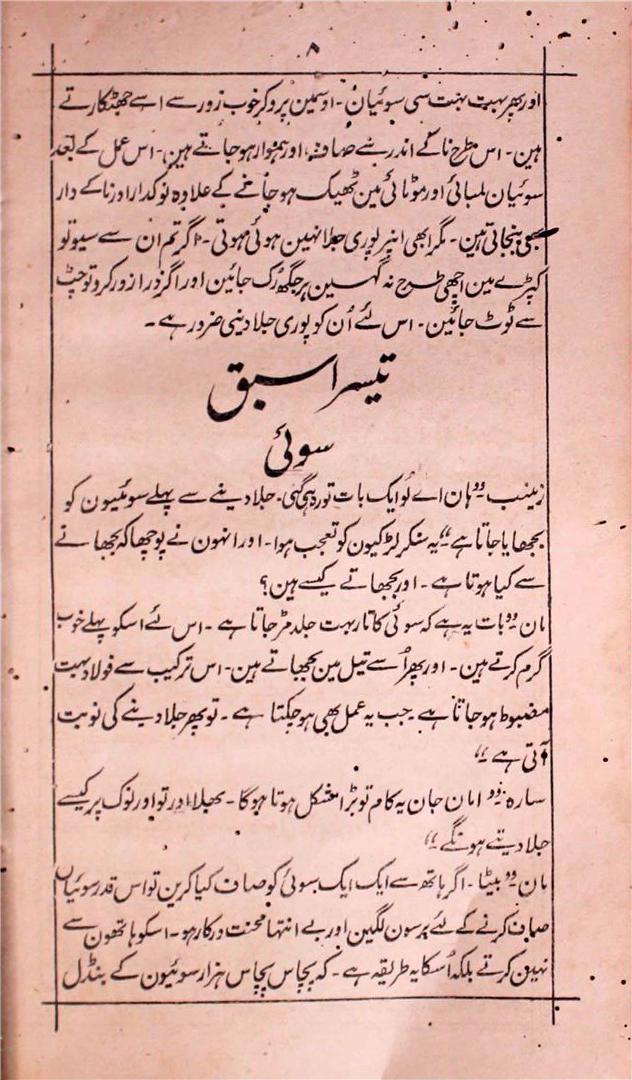 ۸
اور پھر بہت بہت سی سوئیان - اوسمین پرو کر خوب زور سے اسے جھٹکارتے
ہین - اس طرح ناکے اندر سے صاف اور ہموار ہو جاتے ہین - اس عمل کے بعد
سوئیان لمبائی اور موٹائی مین ٹھیک ہو جانے کے علاوہ نوکدار اور ناکے دار
بھی بنجاتی ہین - مگر ابھی انپر پوری جلا نہین ہوئی ہوتی - اگر تم ان سے سیو تو
کپڑے مین اچھی طرح نہ گہسین ہر جگھ رُک جائین اور اگر ذرا زور کرو تو چٹ
سے ٹوٹ جائین - اس لئے اُن کو پوری جلا دینی ضرور ہے -
تیسرا سبق
سوئی
زینب "ہان اے لو ایک بات تو رہ ہی گہی - جلا دینے سے پہلے سوئیون کو
بجھایا جاتا ہے" یہ سنکر لڑکیون کو تعجب ہوا - اور انہون نے پوچھا کہ بجھانے
سے کیا ہوتا ہے - اور بجھاتے کیسے ہین؟
مان "بات یہ ہے کہ سوئی کا تار بہت جلد مڑ جاتا ہے - اس لئے اسکو پہلے خوب
گرم کرتے ہین - اور پھر اُسے تیل مین بجھاتے ہین - اس ترکیب سے فولاد بہت
مضبوط ہو جاتا ہے - جب یہ عمل بھی ہو چکتا ہے - تو پھر جلا دینے کی نوبت
آتی ہے"
سارہ "امان جان یہ کام تو بڑا مشکل ہوتا ہوگا - بھلا اور تو اور نوک پر کیسے
جلا دیتے ہونگے"
مان "بیٹا - اگر ہاتھ سے ایک ایک سوئی کو صاف کیا کرین تو اس قدر سوئیان
صاف کرنے کے لئے برسون لگین اور بے انتہا محنت درکار ہو - اسکو ہاتھون سے
نہین کرتے بلکہ اُسکا یہ طریقہ ہے - کہ پچاس پچاس ہزار سوئیون کے بنڈل